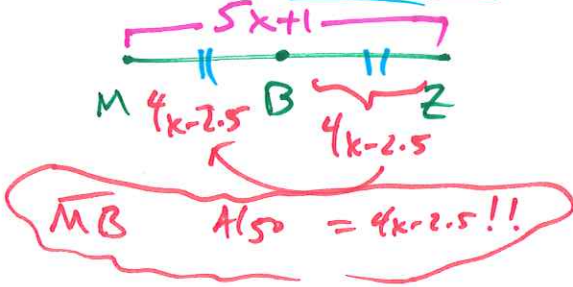 5x+1
M 4x-2.5 B 4x-2.5 Z
MB Also = 4x-2.5!!